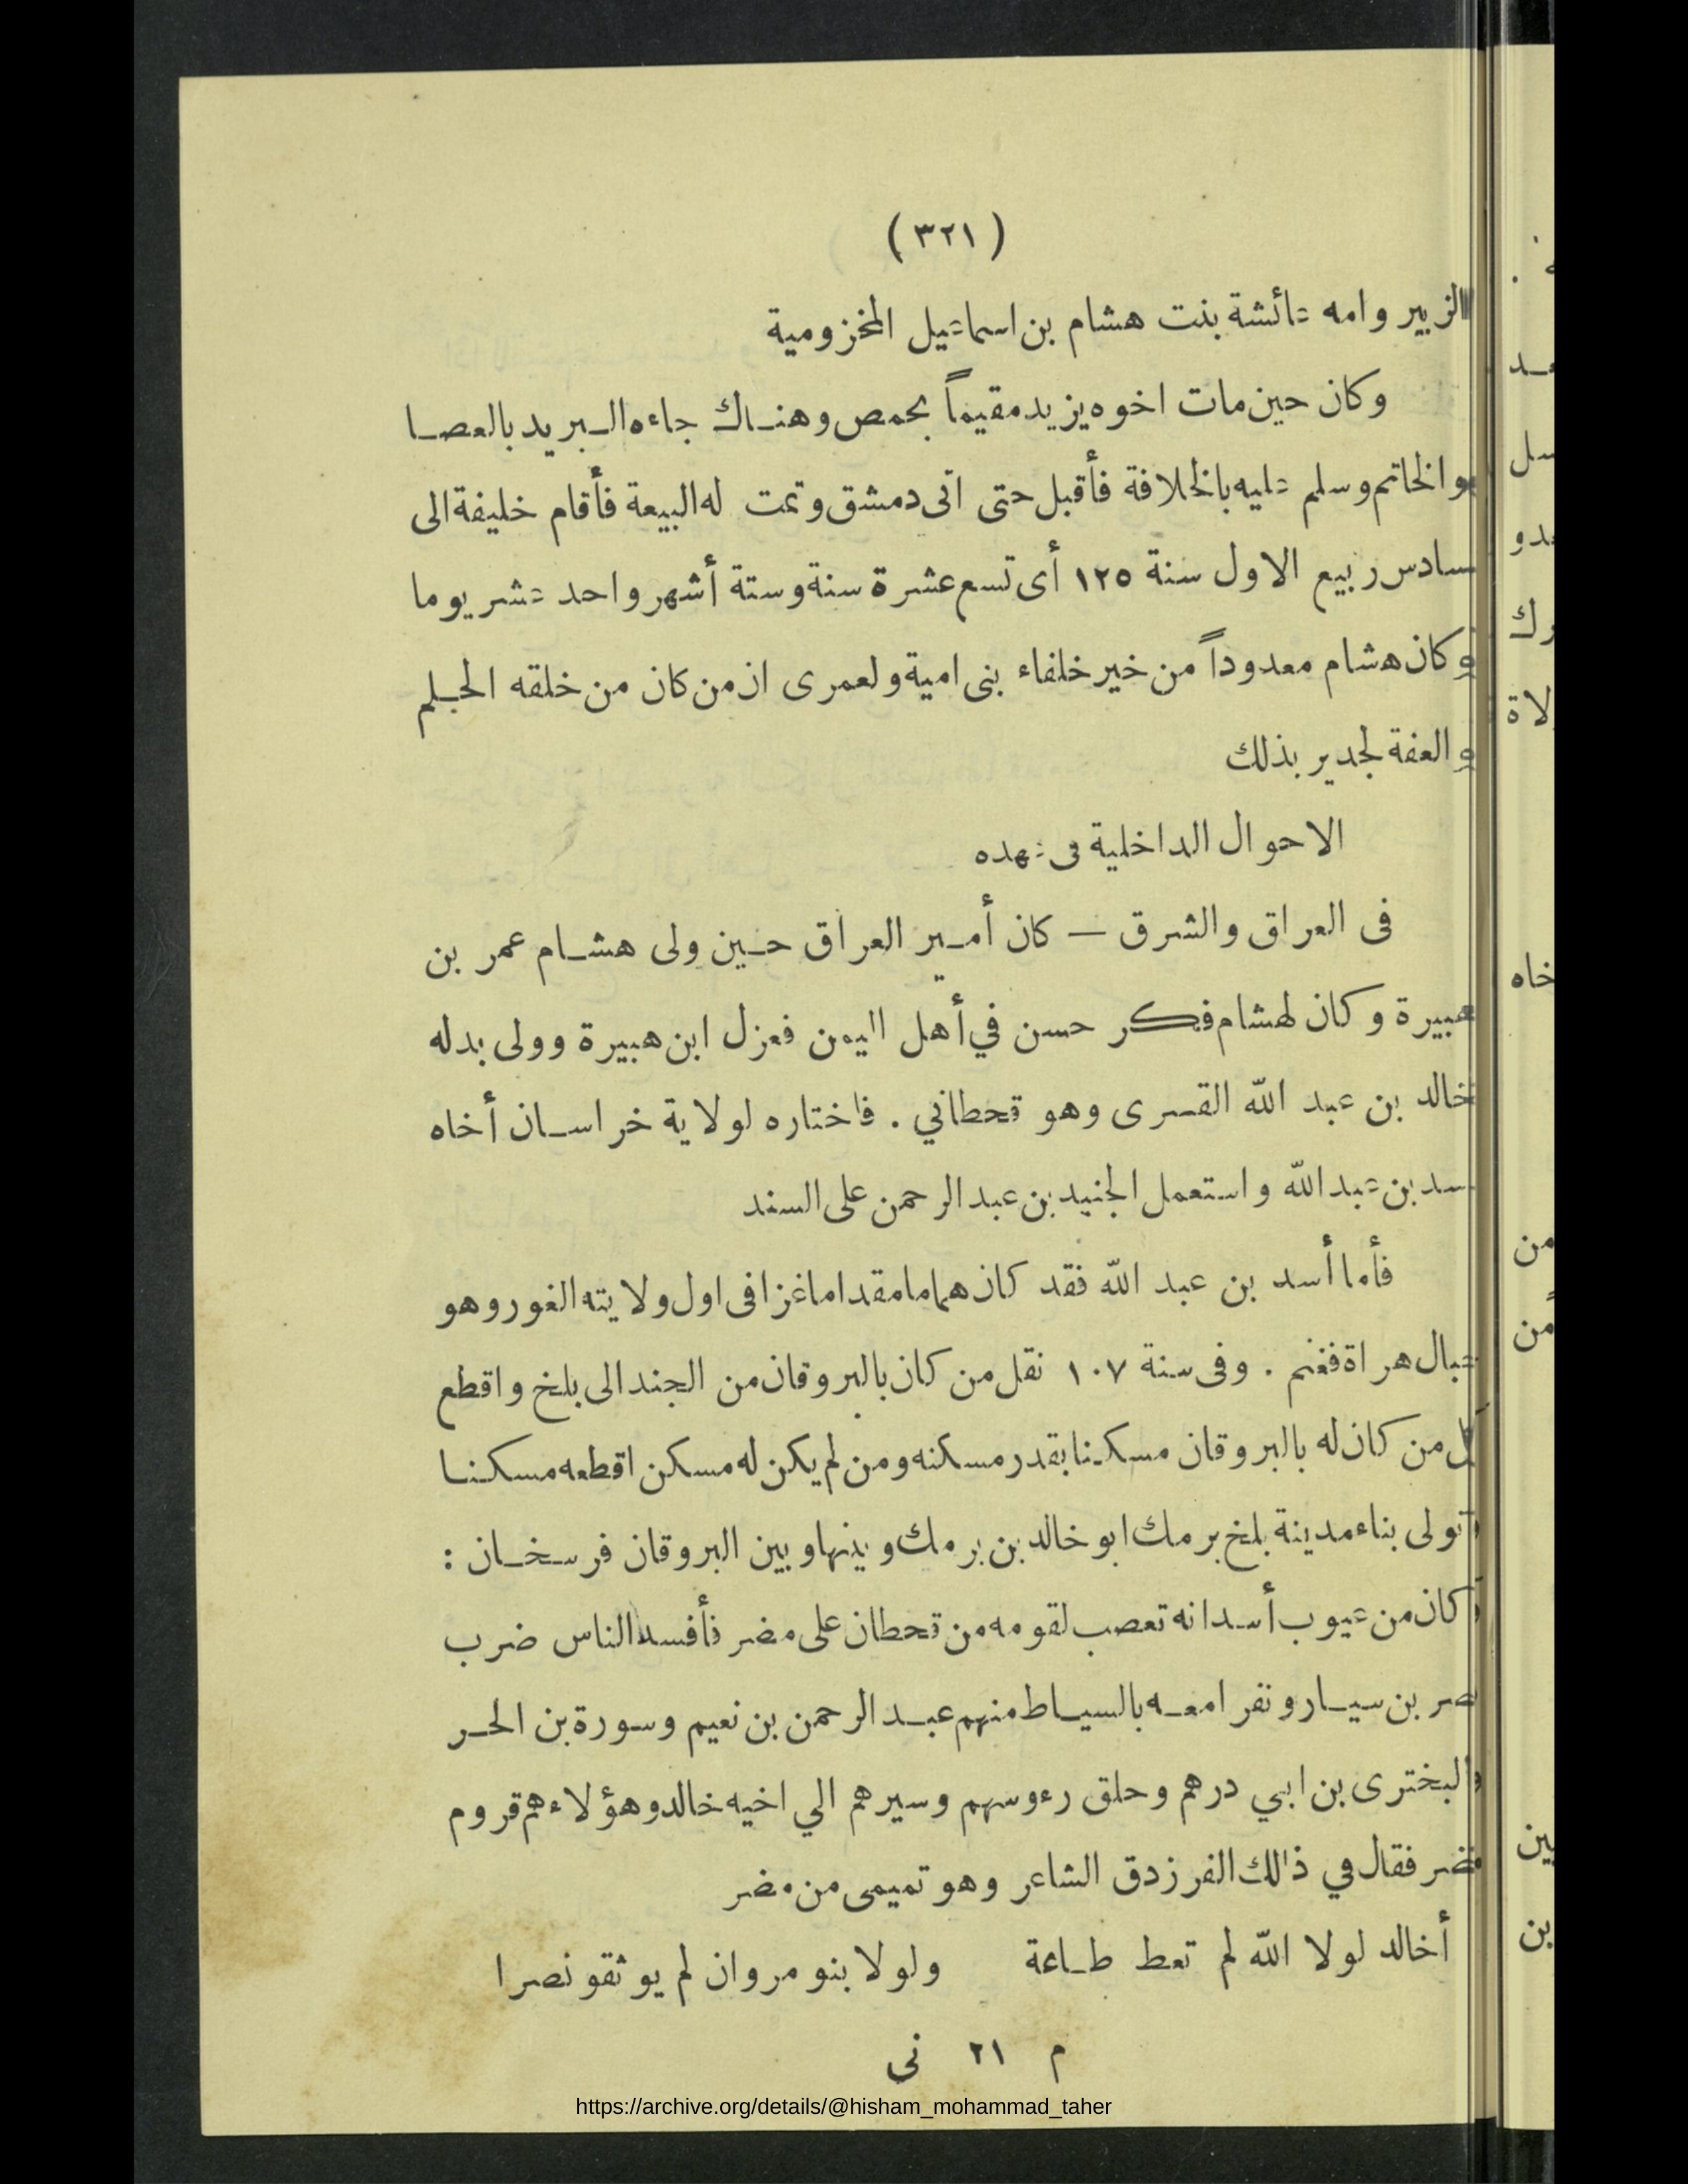 (٣٢١)
الزبير وامه عائشة بنت هشام بن اسماعيل المخزومية
وكان حين مات اخوه يزيد مقيماً بحمص وهناك جاءه البريد بالعصا
والخاتم وسلم عليه بالخلافة فأقبل حتى اتى دمشق وتمت له البيعة فأقام خليفة الى
سادس ربيع الاول سنة ١٢٥ أى تسع عشرة سنة وستة أشهر واحد عشر يوما
وكان هشام معدوداً من خير خلفاء بنى امية ولعمرى ان من كان من خلقه الحلم
والعفة لجدير بذلك
الاحوال الداخلية فى عهده
فى العراق والشرق — كان أمير العراق حين ولى هشام عمر بن
هبيرة وكان لهشام فكر حسن في أهل اليمن فعزل ابن هبيرة وولى بدله
خالد بن عبد الله القسرى وهو قحطاني . فاختاره لولاية خراسان أخاه
سد بن عبد الله واستعمل الجنيد بن عبد الرحمن على السند
فأما أسد بن عبد الله فقد كان هماما مقداما غزا فى اول ولايته الغور وهو
جبال هراة فغنم . وفى سنة ١٠٧ نقل من كان بالبروقان من الجند الى بلخ واقطع
كل من كان له بالبروقان مسكنا بقدر مسكنه ومن لم يكن له مسكن اقطعه مسكنا
وتولى بناء مدينة بلخ برمك ابو خالد بن برمك وبينها وبين البروقان فرسخان :
وكان من عيوب أسد انه تعصب لقومه من قحطان على مضر فأفسد الناس ضرب
نصر بن سيار ونفرا معه بالسياط منهم عبد الرحمن بن نعيم وسورة بن الحر
والبخترى بن ابي درهم وحلق رءوسهم وسيرهم الي اخيه خالد وهؤلاء هم قروم
مضر فقال في ذلك الفرزدق الشاعر وهو تميمى من مضر
أخالد لولا الله لم تعط طاعة ولولا بنو مروان لم يوثقو نصرا
م ٢١ نى
https://archive.org/details/@hisham_mohammad_taher